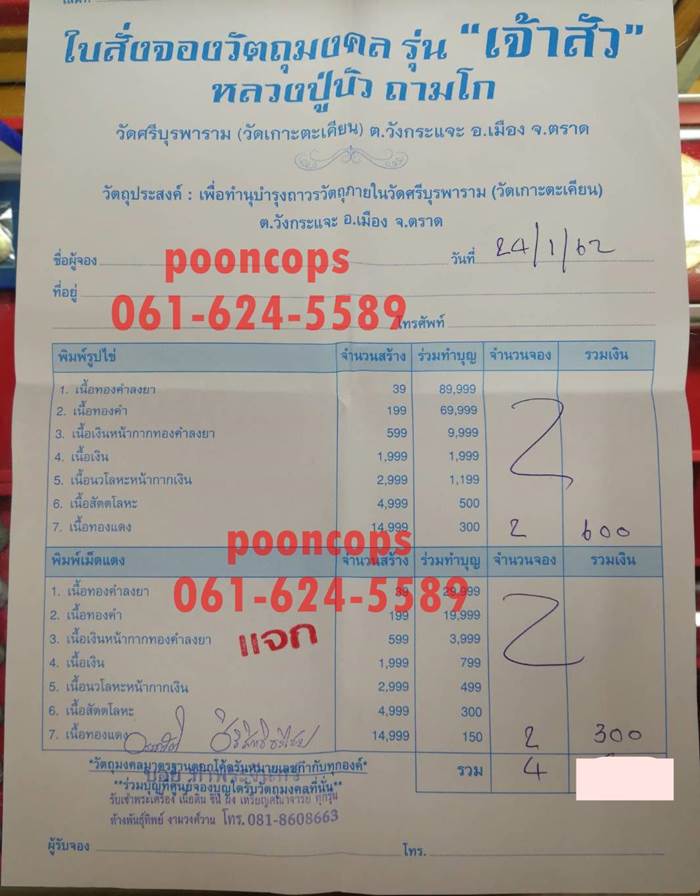 ใบสั่งจองวัตถุมงคล รุ่น "เจ้าสัว"
หลวงปู่บัว ถามโก
วัดศรีบุรพาราม (วัดเกาะตะเคียน) ต.วังกระแจะ อ.เมือง จ.ตราด
วัตถุประสงค์ : เพื่อทำนุบำรุงถาวรวัตถุภายในวัดศรีบุรพาราม (วัดเกาะตะเคียน)
ต.วังกระแจะ อ.เมือง จ.ตราด
ชื่อผู้จอง pooncops วันที่ 24/1/62
ที่อยู่
061-624-5589 โทรศัพท์
พิมพ์รูปไข่ จำนวนสร้าง ร่วมทำบุญ จำนวนจอง รวมเงิน
1. เนื้อทองคำลงยา 39 89,999
2. เนื้อทองคำ 199 69,999
3. เนื้อเงินหน้ากากทองคำลงยา 599 9,999
4. เนื้อเงิน 1,999 1,999
5. เนื้อนวโลหะหน้ากากเงิน 2,999 1,199
6. เนื้อสัตตโลหะ 4,999 500
7. เนื้อทองแดง 14,999 300 2 600
pooncops
พิมพ์เม็ดแตง จำนวนสร้าง ร่วมทำบุญ จำนวนจอง รวมเงิน
1. เนื้อทองคำลงยา 39 29,999
061-624-5589
2. เนื้อทองคำ 199 19,999
3. เนื้อเงินหน้ากากทองคำลงยา 599 3,999
แจก
4. เนื้อเงิน 1,999 799
5. เนื้อนวโลหะหน้ากากเงิน 2,999 499
6. เนื้อสัตตโลหะ 4,999 300
7. เนื้อทองแดง 14,999 150 2 300
*วัตถุมงคลมาตรฐานตอกโค้ดรันหมายเลขกำกับทุกองค์* รวม 4
**ร่วมบุญที่ศูนย์จองบุญใดรับวัตถุมงคลที่นั่น**
ห้างพันธุ์ทิพย์ งามวงศ์วาน โทร.081-8608663
ผู้รับจอง โทร.